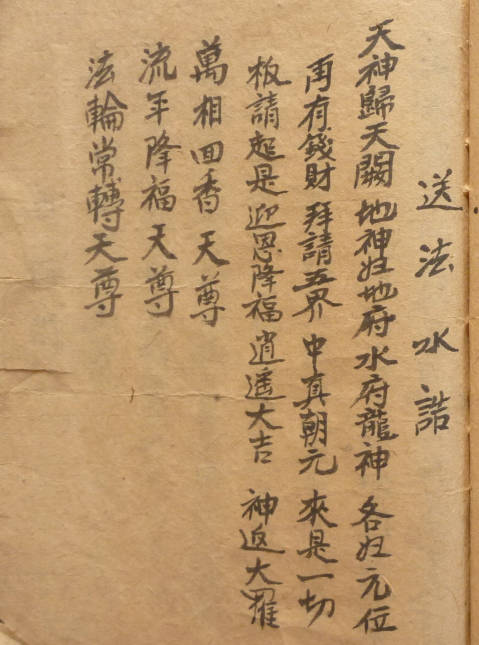 送法水誥
天神歸天闕 地神妇地府 水府龍神 各妇元位
再有錢財 拜請五界 中真朝元 來是一切
板請起是 迎恩降福 逍遥大吉 神返大羅
萬相回香天尊
流年降福天尊
法輪常轉天尊